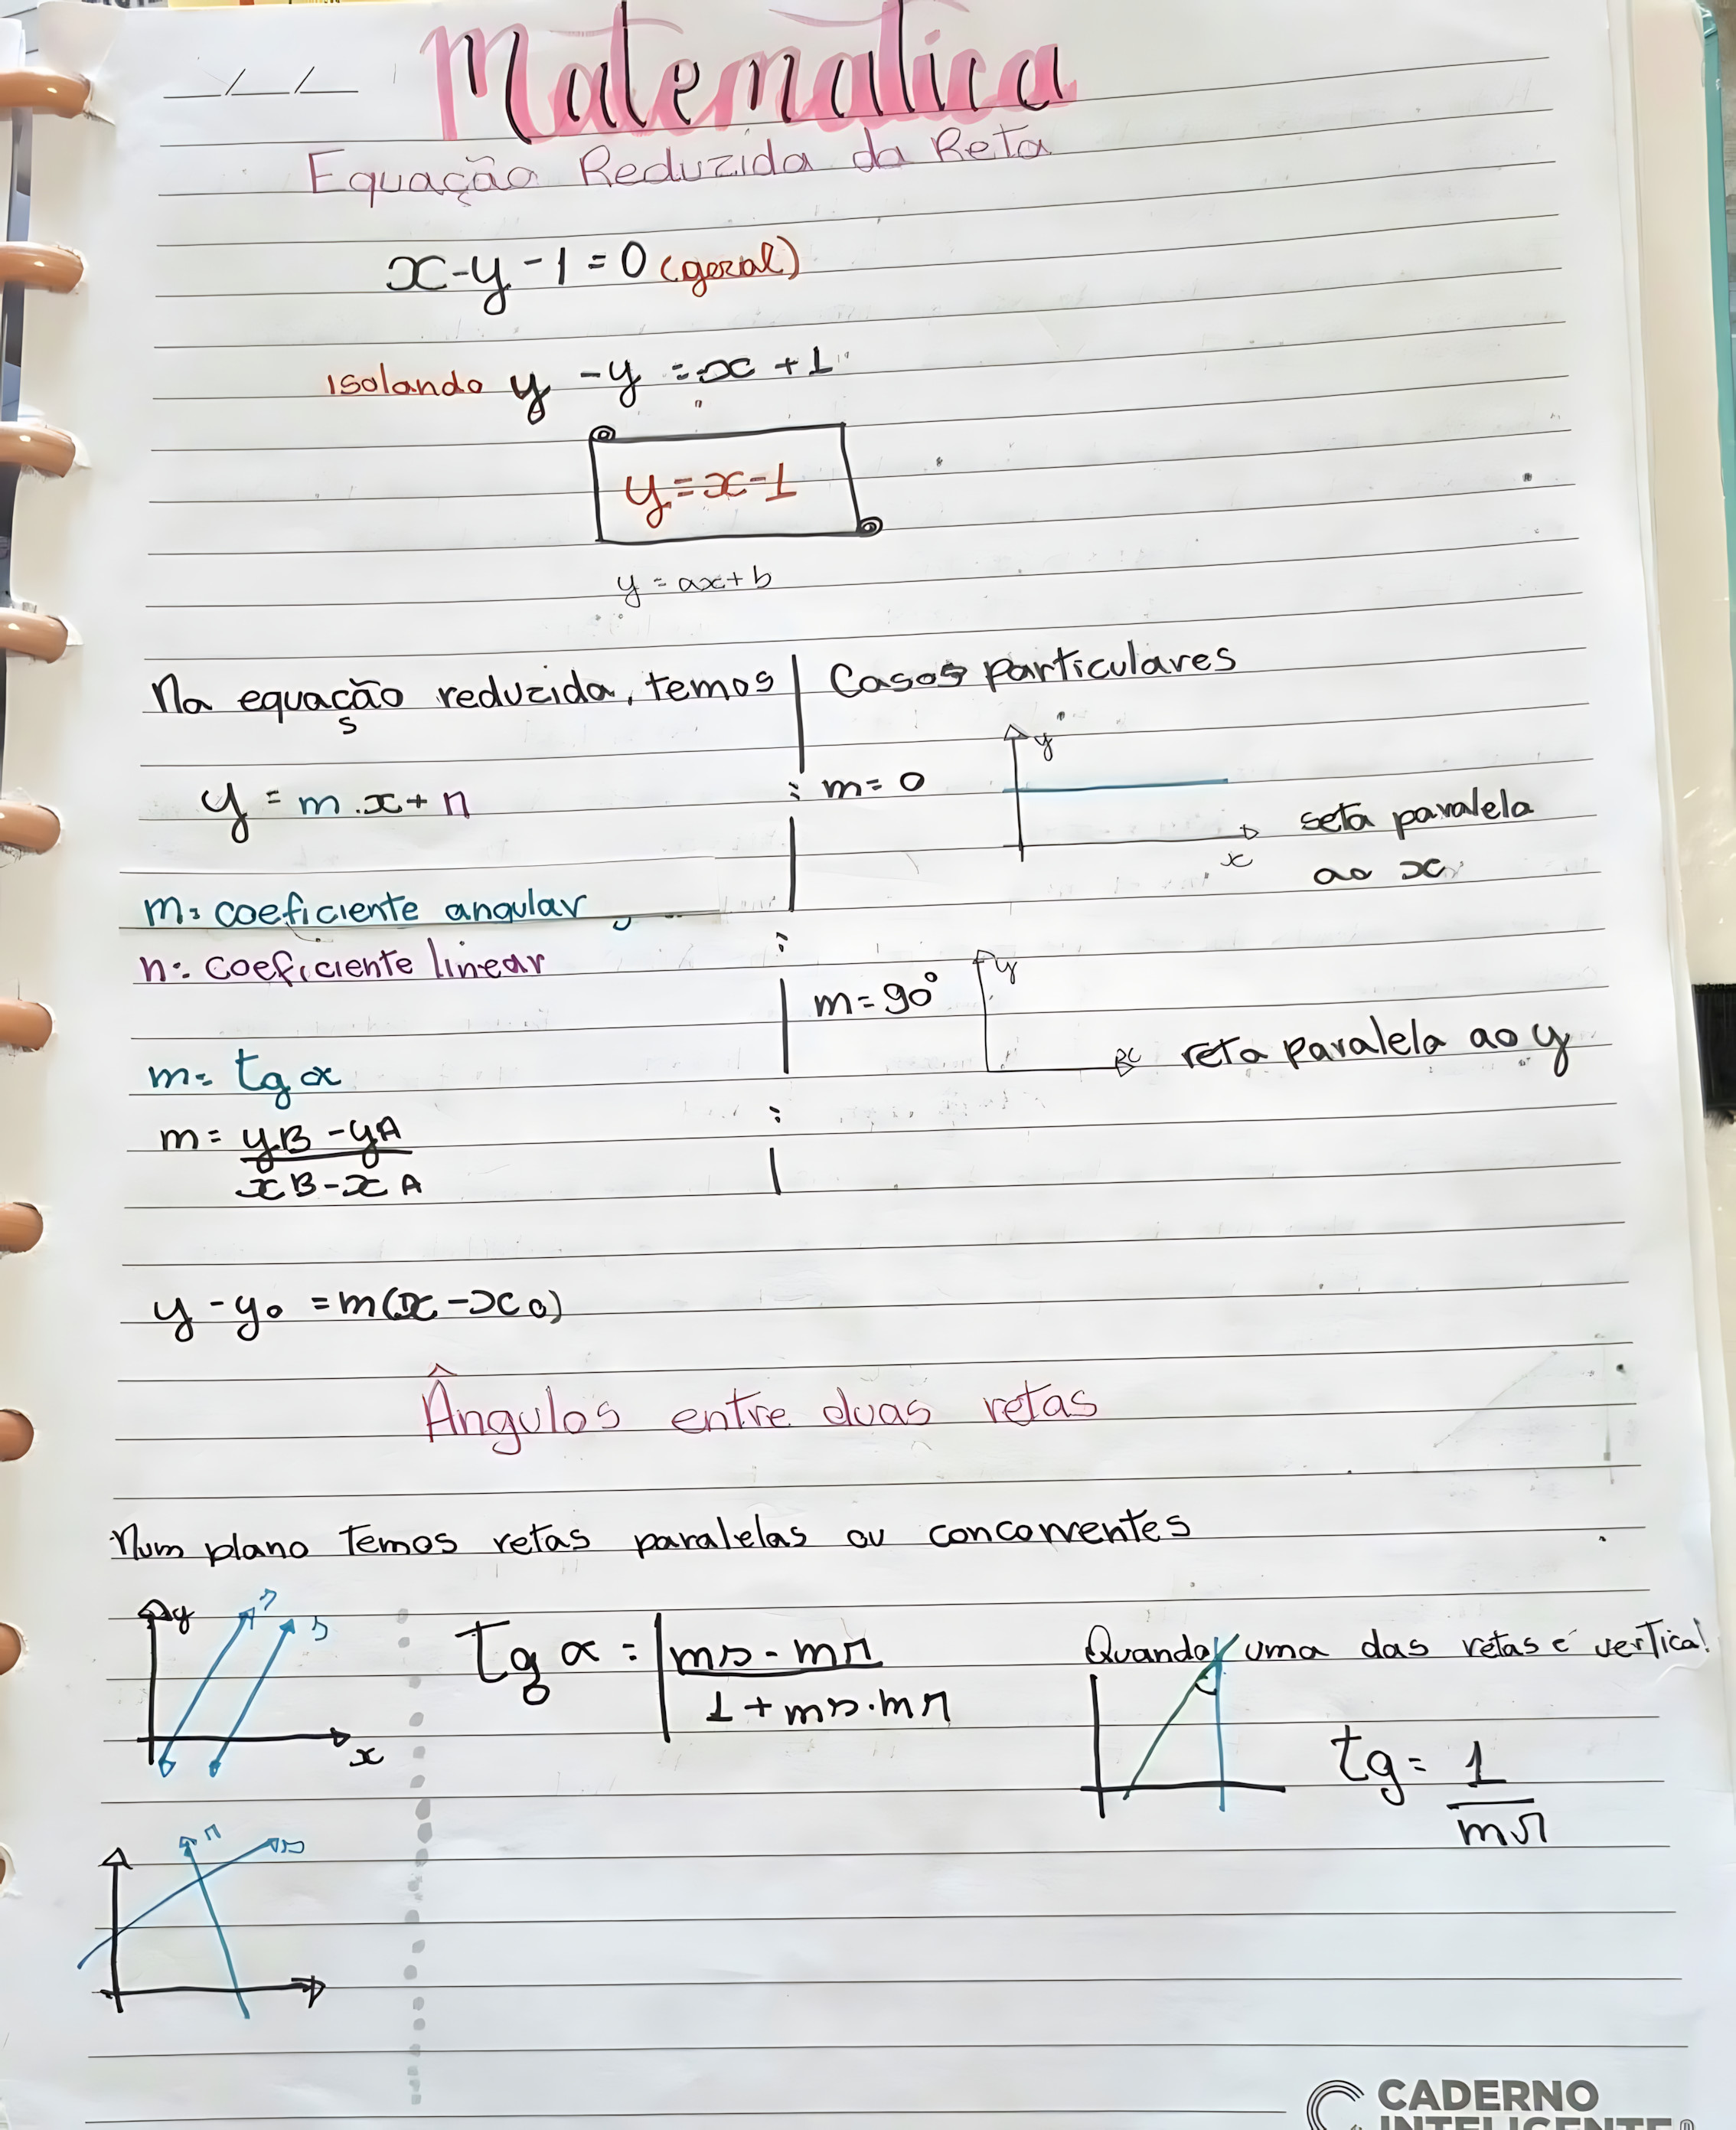 Matemática
Equação Reduzida da Reta
x-y-1=0 (geral)
Isolando y -y =-x +1
y=x-1
y = ax+b
Na equação reduzida, temos
s
y = m.x+n
m: coeficiente angular
n: coeficiente linear
m= tg α
m= yB-yA
xB-xA
y-y0 =m(x-x0)
Casos particulares
m= 0
y
x
seta paralela
ao x
m=90°
y
x
reta paralela ao y
Ângulos entre duas retas
Num plano temos retas paralelas ou concorrentes
y
r
s
x
tg α = |ms-mr
1+ms.mr
Quando uma das retas é vertical
tg= 1
mr
r
s
CADERNO
INTELIGENTE®